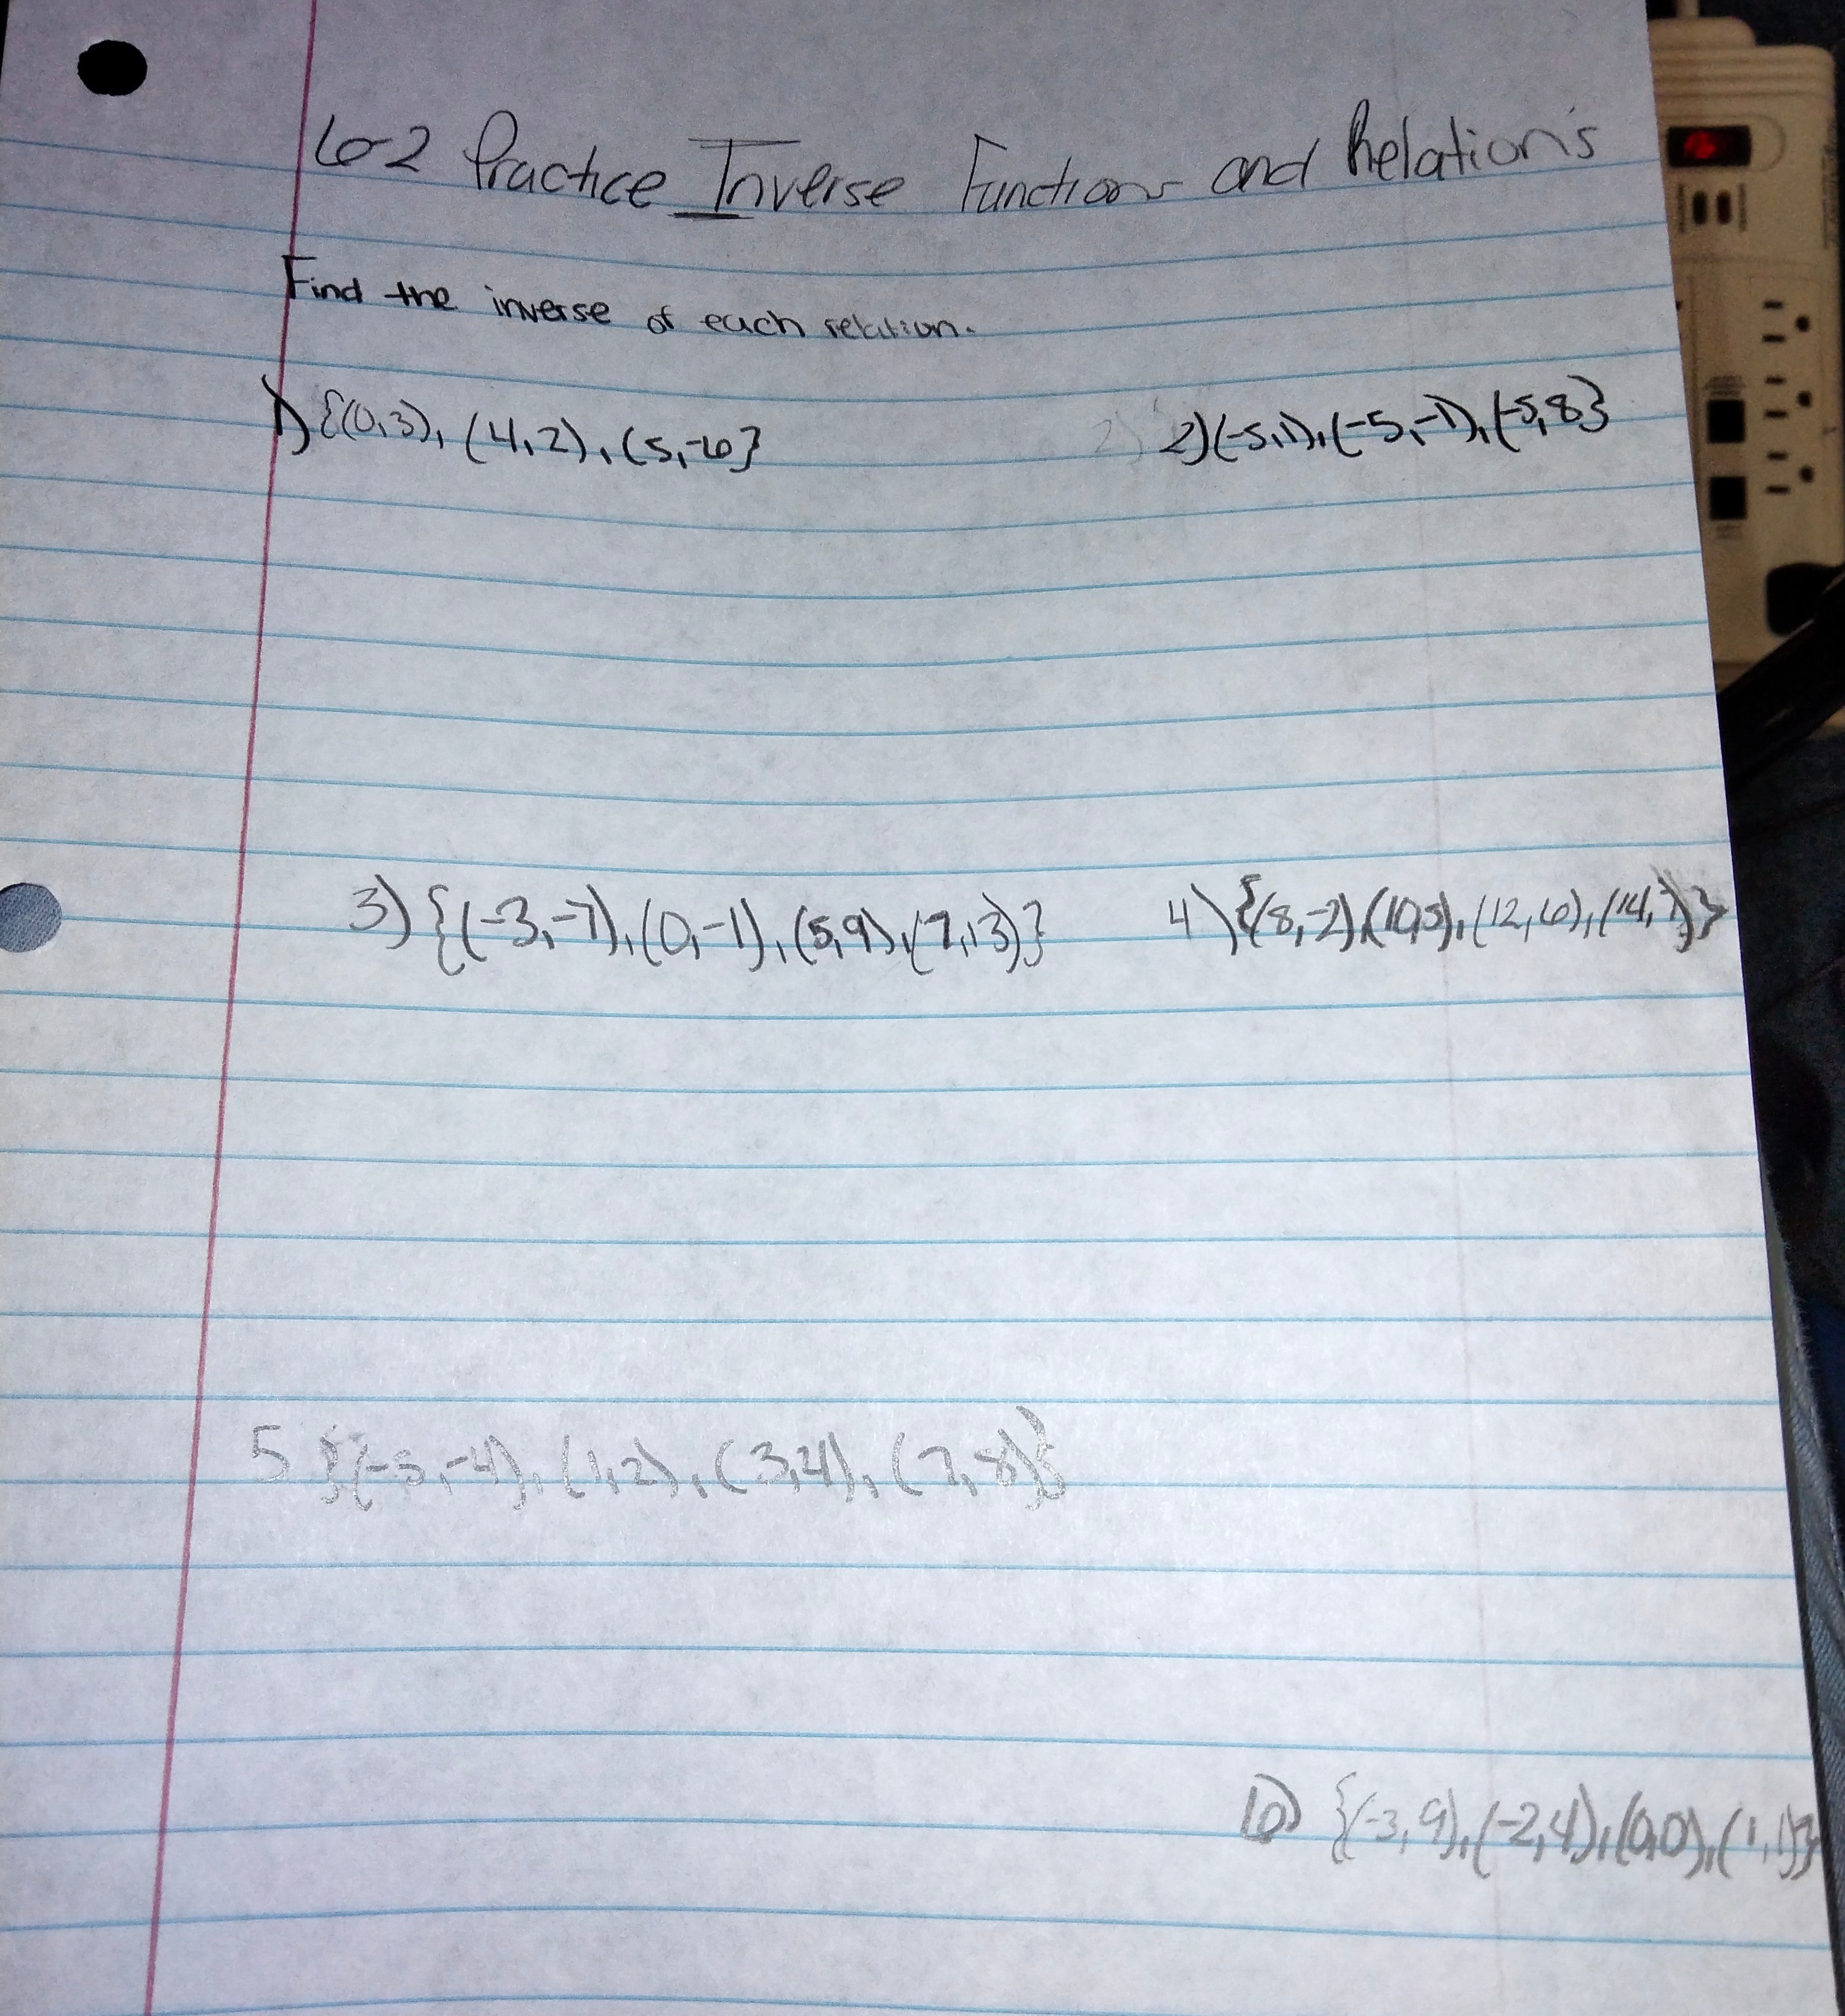 6-2 Practice Inverse Functions and Relations
Find the inverse of each relation.
1) {(0,3), (4,2), (5,-6}
2) (-5,1), (-5,-1), (-5,8}
3) {(-3,-7), (0,-1), (5,9), (7,13)}
4) {(8,-2), (10,5), (12,6), (14,7)}
5 {(-5,-4), (1,2), (3,4), (7,8)}
6) {(-3,9), (-2,4), (0,0), (1,1)}